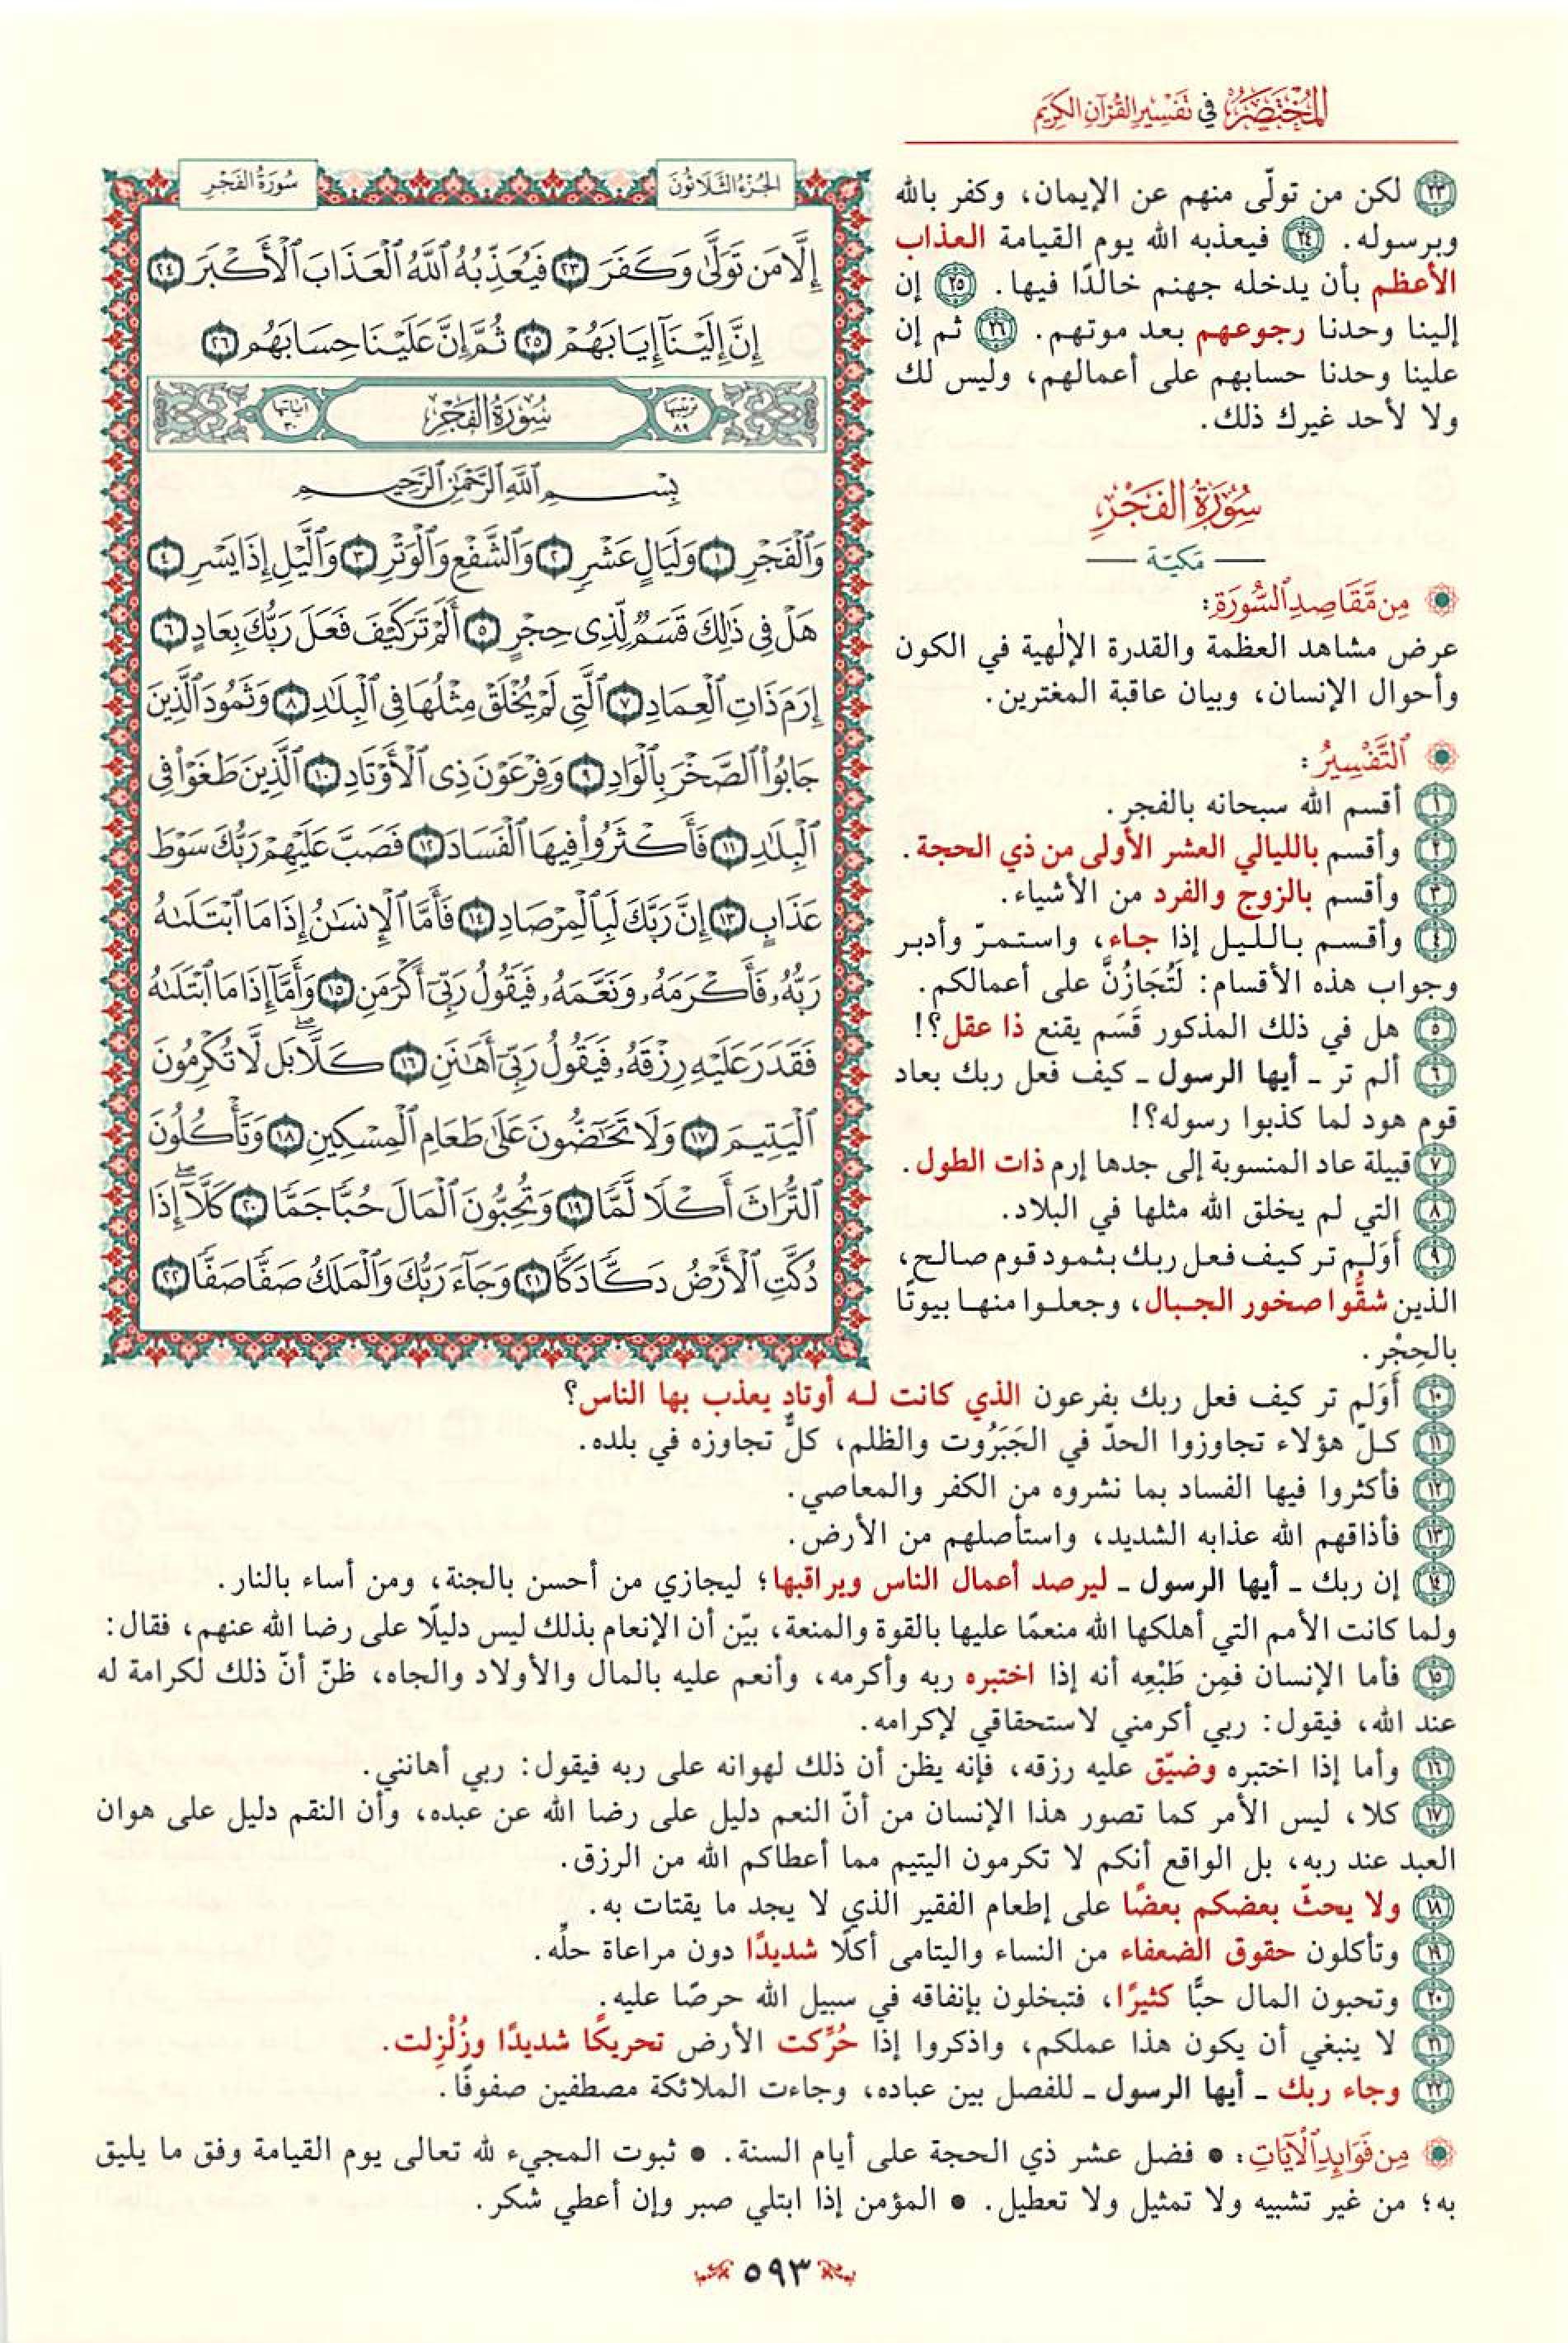 المُخْتَصَرُ في تَفْسِيرِ القُرْآنِ الكَرِيمِ
الجُزْءُ الثَّلَاثُونَ
سُورَةُ الفَجْرِ
إِلَّا مَن تَوَلَّىٰ وَكَفَرَ ٢٣ فَيُعَذِّبُهُ ٱللَّهُ ٱلْعَذَابَ ٱلْأَكْبَرَ ٢٤
إِنَّ إِلَيْنَآ إِيَابَهُمْ ٢٥ ثُمَّ إِنَّ عَلَيْنَا حِسَابَهُم ٢٦
ترتيبها ٨٩ سُورَةُ الفَجْرِ آياتها ٣٠
بِسْمِ ٱللَّهِ ٱلرَّحْمَٰنِ ٱلرَّحِيمِ
وَٱلْفَجْرِ ١ وَلَيَالٍ عَشْرٍ ٢ وَٱلشَّفْعِ وَٱلْوَتْرِ ٣ وَٱلَّيْلِ إِذَا يَسْرِ ٤
هَلْ فِى ذَٰلِكَ قَسَمٌ لِّذِى حِجْرٍ ٥ أَلَمْ تَرَ كَيْفَ فَعَلَ رَبُّكَ بِعَادٍ ٦
إِرَمَ ذَاتِ ٱلْعِمَادِ ٧ ٱلَّتِى لَمْ يُخْلَقْ مِثْلُهَا فِى ٱلْبِلَٰدِ ٨ وَثَمُودَ ٱلَّذِينَ
جَابُوا۟ ٱلصَّخْرَ بِٱلْوَادِ ٩ وَفِرْعَوْنَ ذِى ٱلْأَوْتَادِ ١٠ ٱلَّذِينَ طَغَوْا۟ فِى
ٱلْبِلَٰدِ ١١ فَأَكْثَرُوا۟ فِيهَا ٱلْفَسَادَ ١٢ فَصَبَّ عَلَيْهِمْ رَبُّكَ سَوْطَ
عَذَابٍ ١٣ إِنَّ رَبَّكَ لَبِٱلْمِرْصَادِ ١٤ فَأَمَّا ٱلْإِنسَٰنُ إِذَا مَا ٱبْتَلَىٰهُ
رَبُّهُۥ فَأَكْرَمَهُۥ وَنَعَّمَهُۥ فَيَقُولُ رَبِّىٓ أَكْرَمَنِ ١٥ وَأَمَّآ إِذَا مَا ٱبْتَلَىٰهُ
فَقَدَرَ عَلَيْهِ رِزْقَهُۥ فَيَقُولُ رَبِّىٓ أَهَٰنَنِ ١٦ كَلَّا ۖ بَل لَّا تُكْرِمُونَ
ٱلْيَتِيمَ ١٧ وَلَا تَحَٰٓضُّونَ عَلَىٰ طَعَامِ ٱلْمِسْكِينِ ١٨ وَتَأْكُلُونَ
ٱلتُّرَاثَ أَكْلًا لَّمًّا ١٩ وَتُحِبُّونَ ٱلْمَالَ حُبًّا جَمًّا ٢٠ كَلَّآ ۖ إِذَا
دُكَّتِ ٱلْأَرْضُ دَكًّا دَكًّا ٢١ وَجَآءَ رَبُّكَ وَٱلْمَلَكُ صَفًّا صَفًّا ٢٢
٢٣ لكن من تولّى منهم عن الإيمان، وكفر بالله
وبرسوله. ٢٤ فيعذبه الله يوم القيامة العذاب
الأعظم بأن يدخله جهنم خالدًا فيها. ٢٥ إن
إلينا وحدنا رجوعهم بعد موتهم. ٢٦ ثم إن
علينا وحدنا حسابهم على أعمالهم، وليس لك
ولا لأحد غيرك ذلك.
سُورَةُ الفَجْرِ
مَكيّة
مِن مَّقَاصِدِ ٱلسُّورَةِ:
عرض مشاهد العظمة والقدرة الإلٰهية في الكون
وأحوال الإنسان، وبيان عاقبة المغترين.
ٱلتَّفْسِيرُ:
١ أقسم الله سبحانه بالفجر.
٢ وأقسم بالليالي العشر الأولى من ذي الحجة.
٣ وأقسم بالزوج والفرد من الأشياء.
٤ وأقسم بالليل إذا جاء، واستمرّ وأدبر
وجواب هذه الأقسام: لَتُجَازُنَّ على أعمالكم.
٥ هل في ذلك المذكور قَسَم يقنع ذا عقل؟!
٦ ألم تر ـ أيها الرسول ـ كيف فعل ربك بعاد
قوم هود لما كذبوا رسوله؟!
٧ قبيلة عاد المنسوبة إلى جدها إرم ذات الطول.
٨ التي لم يخلق الله مثلها في البلاد.
٩ أَوَلم تر كيف فعل ربك بثمود قوم صالح،
الذين شقُّوا صخور الجبال، وجعلوا منها بيوتًا
بالحِجْر.
١٠ أَوَلم تر كيف فعل ربك بفرعون الذي كانت له أوتاد يعذب بها الناس؟
١١ كلّ هؤلاء تجاوزوا الحدّ في الجَبَرُوت والظلم، كلٌّ تجاوزه في بلده.
١٢ فأكثروا فيها الفساد بما نشروه من الكفر والمعاصي.
١٣ فأذاقهم الله عذابه الشديد، واستأصلهم من الأرض.
١٤ إن ربك ـ أيها الرسول ـ ليرصد أعمال الناس ويراقبها؛ ليجازي من أحسن بالجنة، ومن أساء بالنار.
ولما كانت الأمم التي أهلكها الله منعمًا عليها بالقوة والمنعة، بيّن أن الإنعام بذلك ليس دليلًا على رضا الله عنهم، فقال:
١٥ فأما الإنسان فمِن طَبْعِه أنه إذا اختبره ربه وأكرمه، وأنعم عليه بالمال والأولاد والجاه، ظنّ أنّ ذلك لكرامة له
عند الله، فيقول: ربي أكرمني لاستحقاقي لإكرامه.
١٦ وأما إذا اختبره وضيّق عليه رزقه، فإنه يظن أن ذلك لهوانه على ربه فيقول: ربي أهانني.
١٧ كلا، ليس الأمر كما تصور هذا الإنسان من أنّ النعم دليل على رضا الله عن عبده، وأن النقم دليل على هوان
العبد عند ربه، بل الواقع أنكم لا تكرمون اليتيم مما أعطاكم الله من الرزق.
١٨ ولا يحثّ بعضكم بعضًا على إطعام الفقير الذي لا يجد ما يقتات به.
١٩ وتأكلون حقوق الضعفاء من النساء واليتامى أكلًا شديدًا دون مراعاة حلِّه.
٢٠ وتحبون المال حبًّا كثيرًا، فتبخلون بإنفاقه في سبيل الله حرصًا عليه.
٢١ لا ينبغي أن يكون هذا عملكم، واذكروا إذا حُرِّكت الأرض تحريكًا شديدًا وزُلْزِلت.
٢٢ وجاء ربك ـ أيها الرسول ـ للفصل بين عباده، وجاءت الملائكة مصطفين صفوفًا.
مِن فَوَائِدِ ٱلْآيَاتِ: • فضل عشر ذي الحجة على أيام السنة. • ثبوت المجيء لله تعالى يوم القيامة وفق ما يليق
به؛ من غير تشبيه ولا تمثيل ولا تعطيل. • المؤمن إذا ابتلي صبر وإن أعطي شكر.
٥٩٣